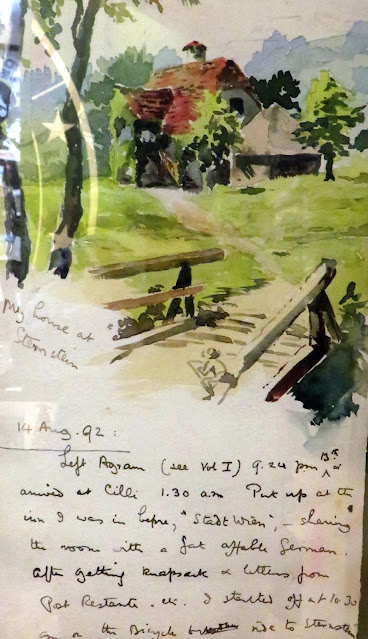 My house at
Sternstein
14 Aug. 92:
Left Agram (see Vol I) 9.24 pm 13th &
arrived at Cilli 1.30 a.m Put up at the
inn I was in before, "Stadt Wien", - sharing
the room with a fat affable German.
After getting knapsack & letters from
Post Restante. etc. I started off at 10.30
am on the Bicycle ride to Sternstein